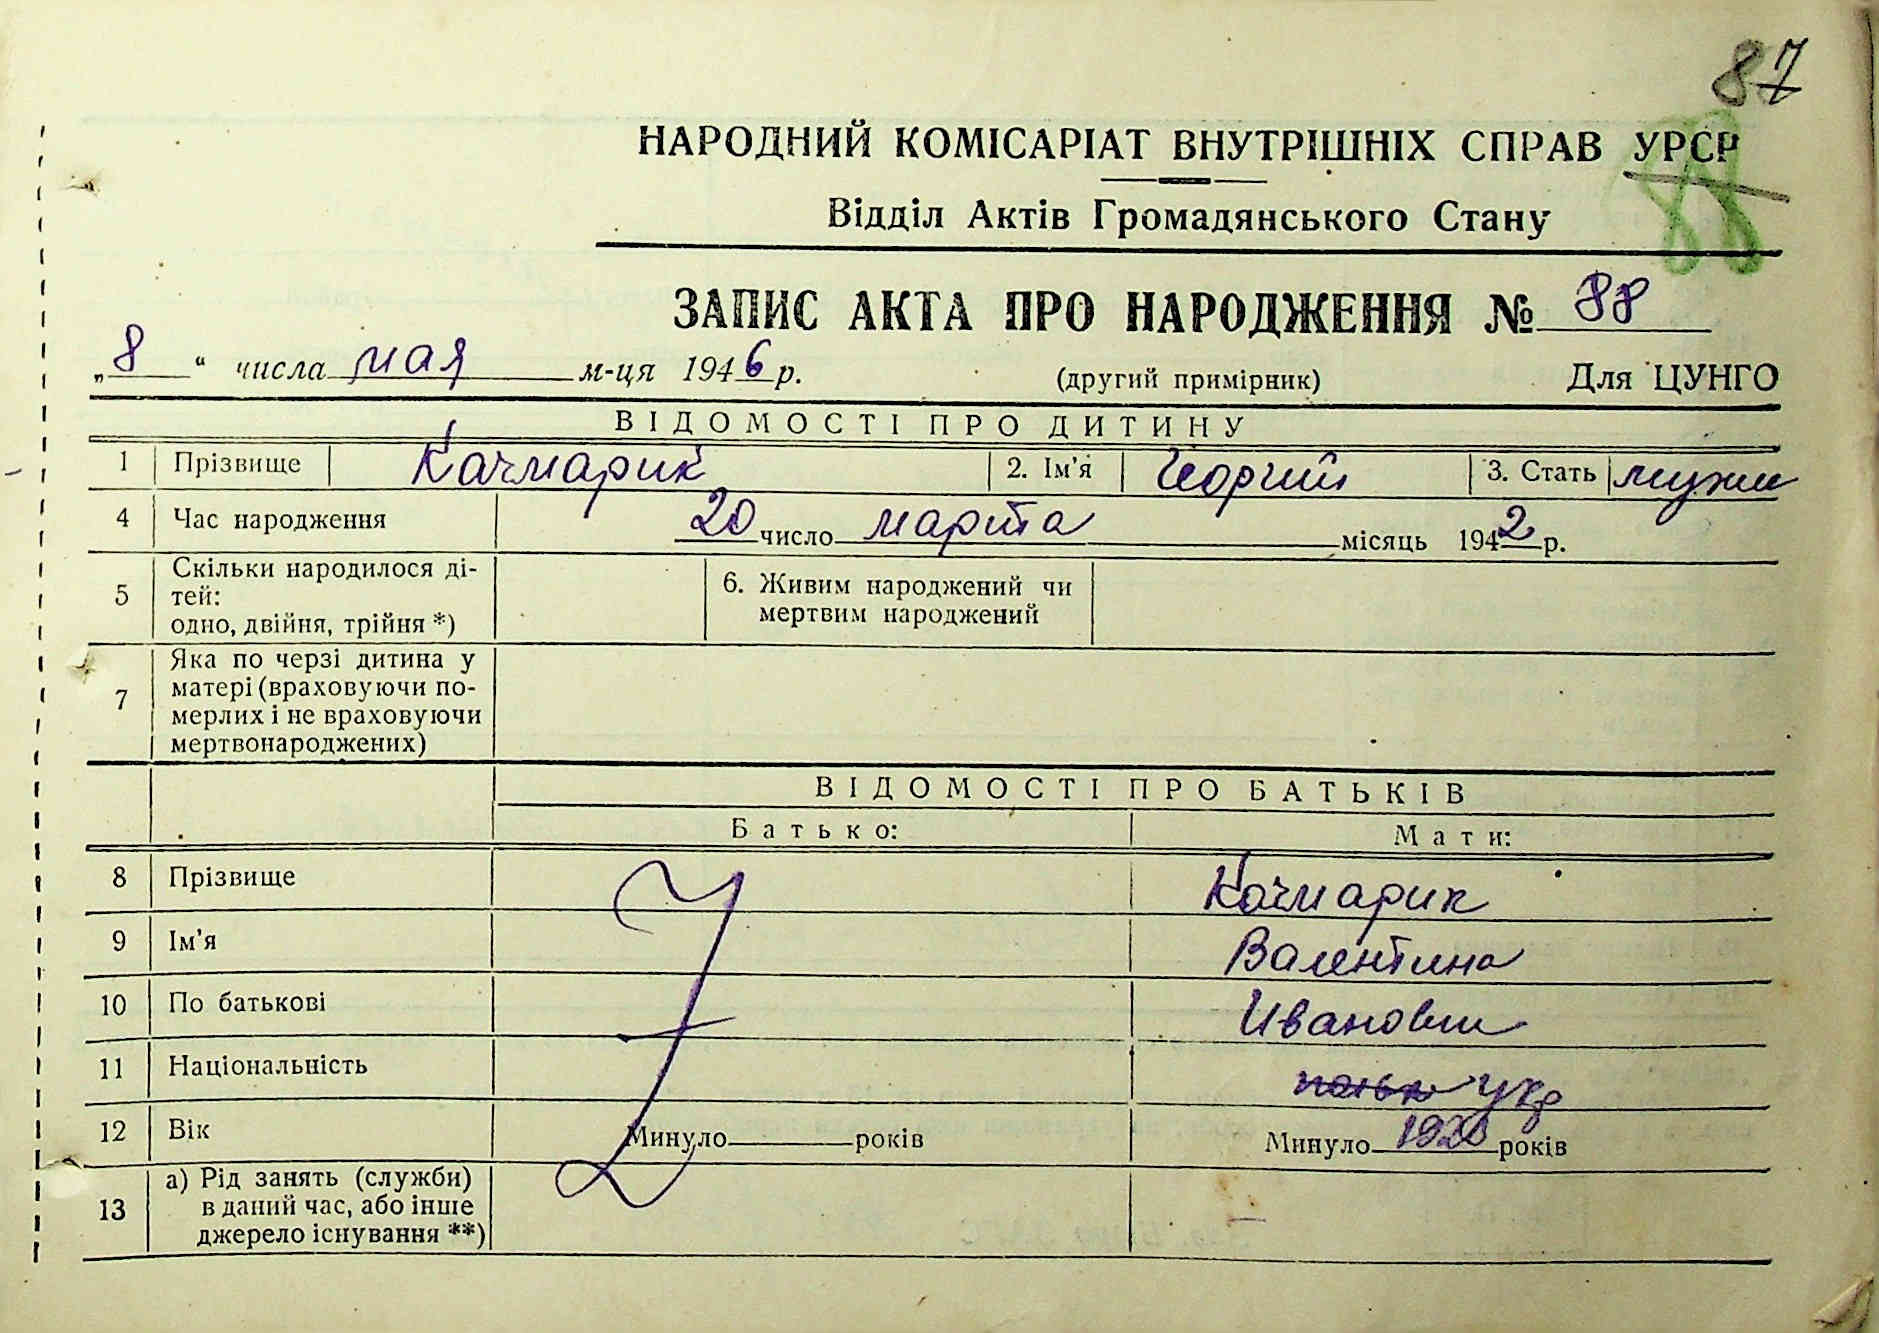 87
НАРОДНИЙ КОМІСАРІАТ ВНУТРІШНІХ СПРАВ УРСР
88
Відділ Актів Громадянського Стану
ЗАПИС АКТА ПРО НАРОДЖЕННЯ № 88
„8“ числа мая м-ця 1946 р. (другий примірник) Для ЦУНГО
ВІДОМОСТІ ПРО ДИТИНУ
1 Прізвище Качмарик 2. Ім'я Георгий 3. Стать мужск
4 Час народження 20 число марта місяць 1942 р.
5 Скільки народилося ді-
тей:
одно, двійня, трійня *)
6. Живим народжений чи
мертвим народжений
7 Яка по черзі дитина у
матері (враховуючи по-
мерлих і не враховуючи
мертвонароджених)
ВІДОМОСТІ ПРО БАТЬКІВ
Батько: Мати:
8 Прізвище Качмарик
9 Ім'я Валентина
10 По батькові Ивановн
11 Національність укр
12 Вік Минуло років Минуло років
13 а) Рід занять (служби)
в даний час, або інше
джерело існування **)